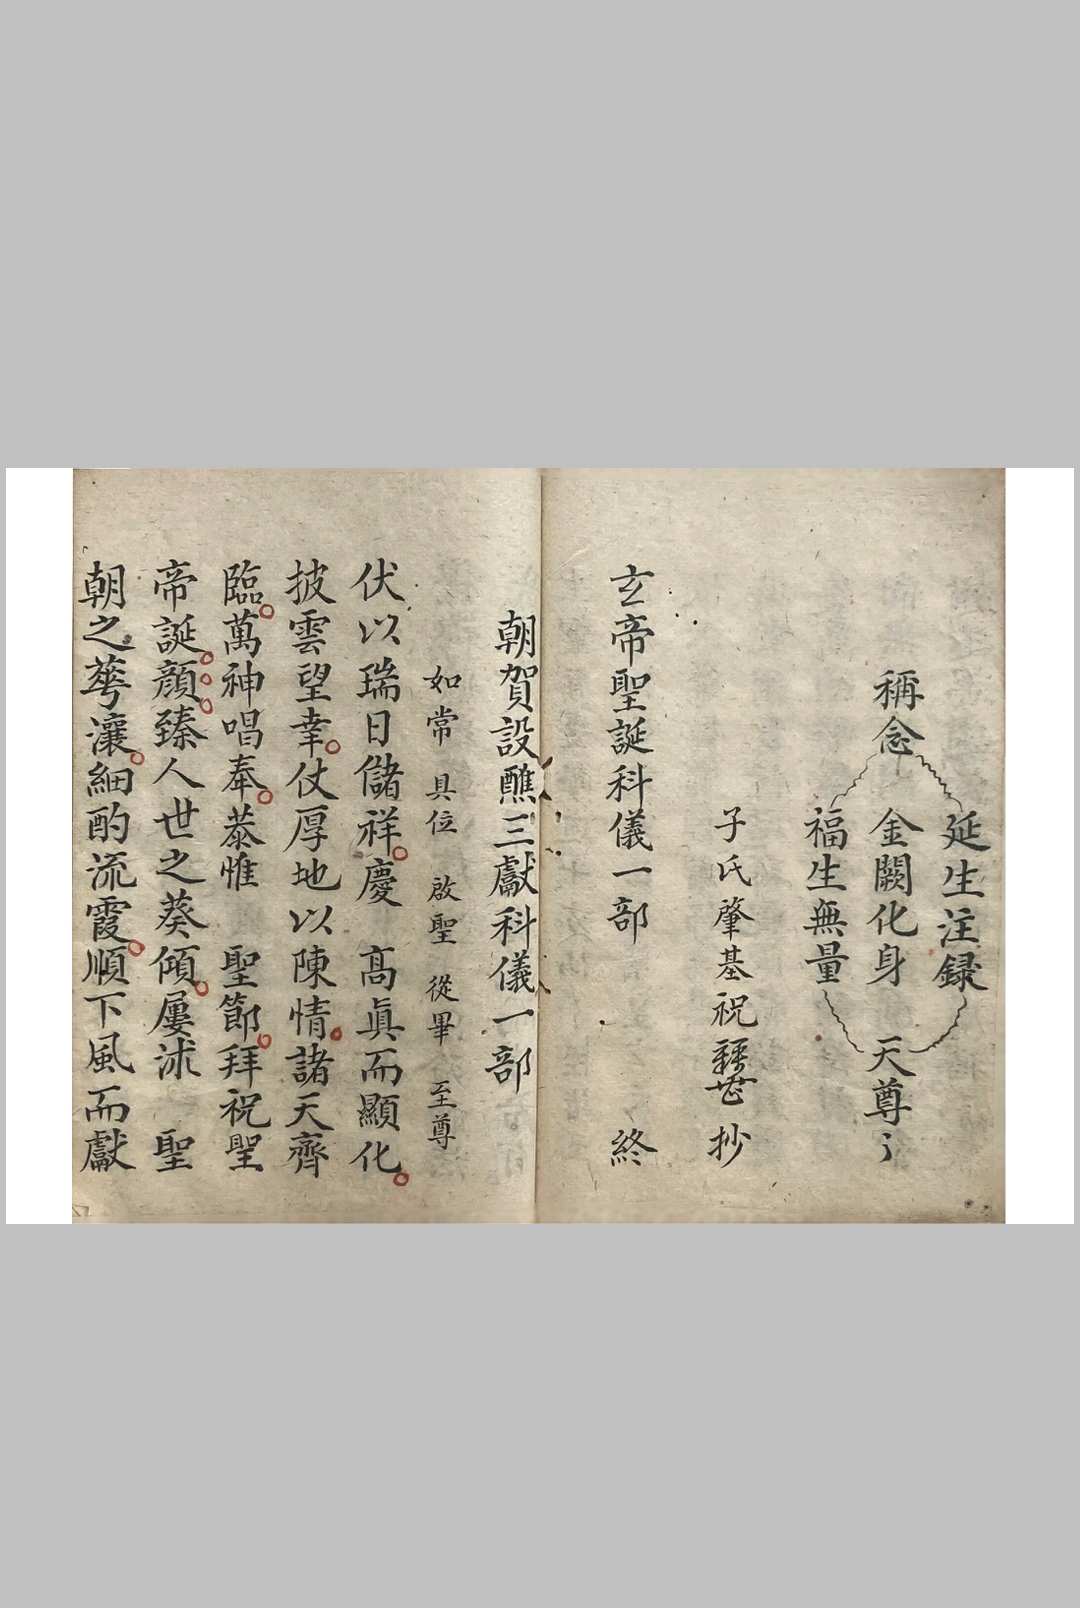 稱念
延生注録
金闕化身
福生無量
天尊
子氏肇基祝 抄
玄帝聖誕科儀一部 終
朝賀設醮三獻科儀一部
如常 具位 啟聖 從畢 至尊
伏以瑞日儲祥慶 髙眞而顯化
披雲望幸仗厚地以陳情諸天齊
臨萬神唱奉恭惟 聖節拜祝聖
帝誕顔臻人世之葵傾屢沭 聖
朝之蕚瀼細酌流霞順下風而獻